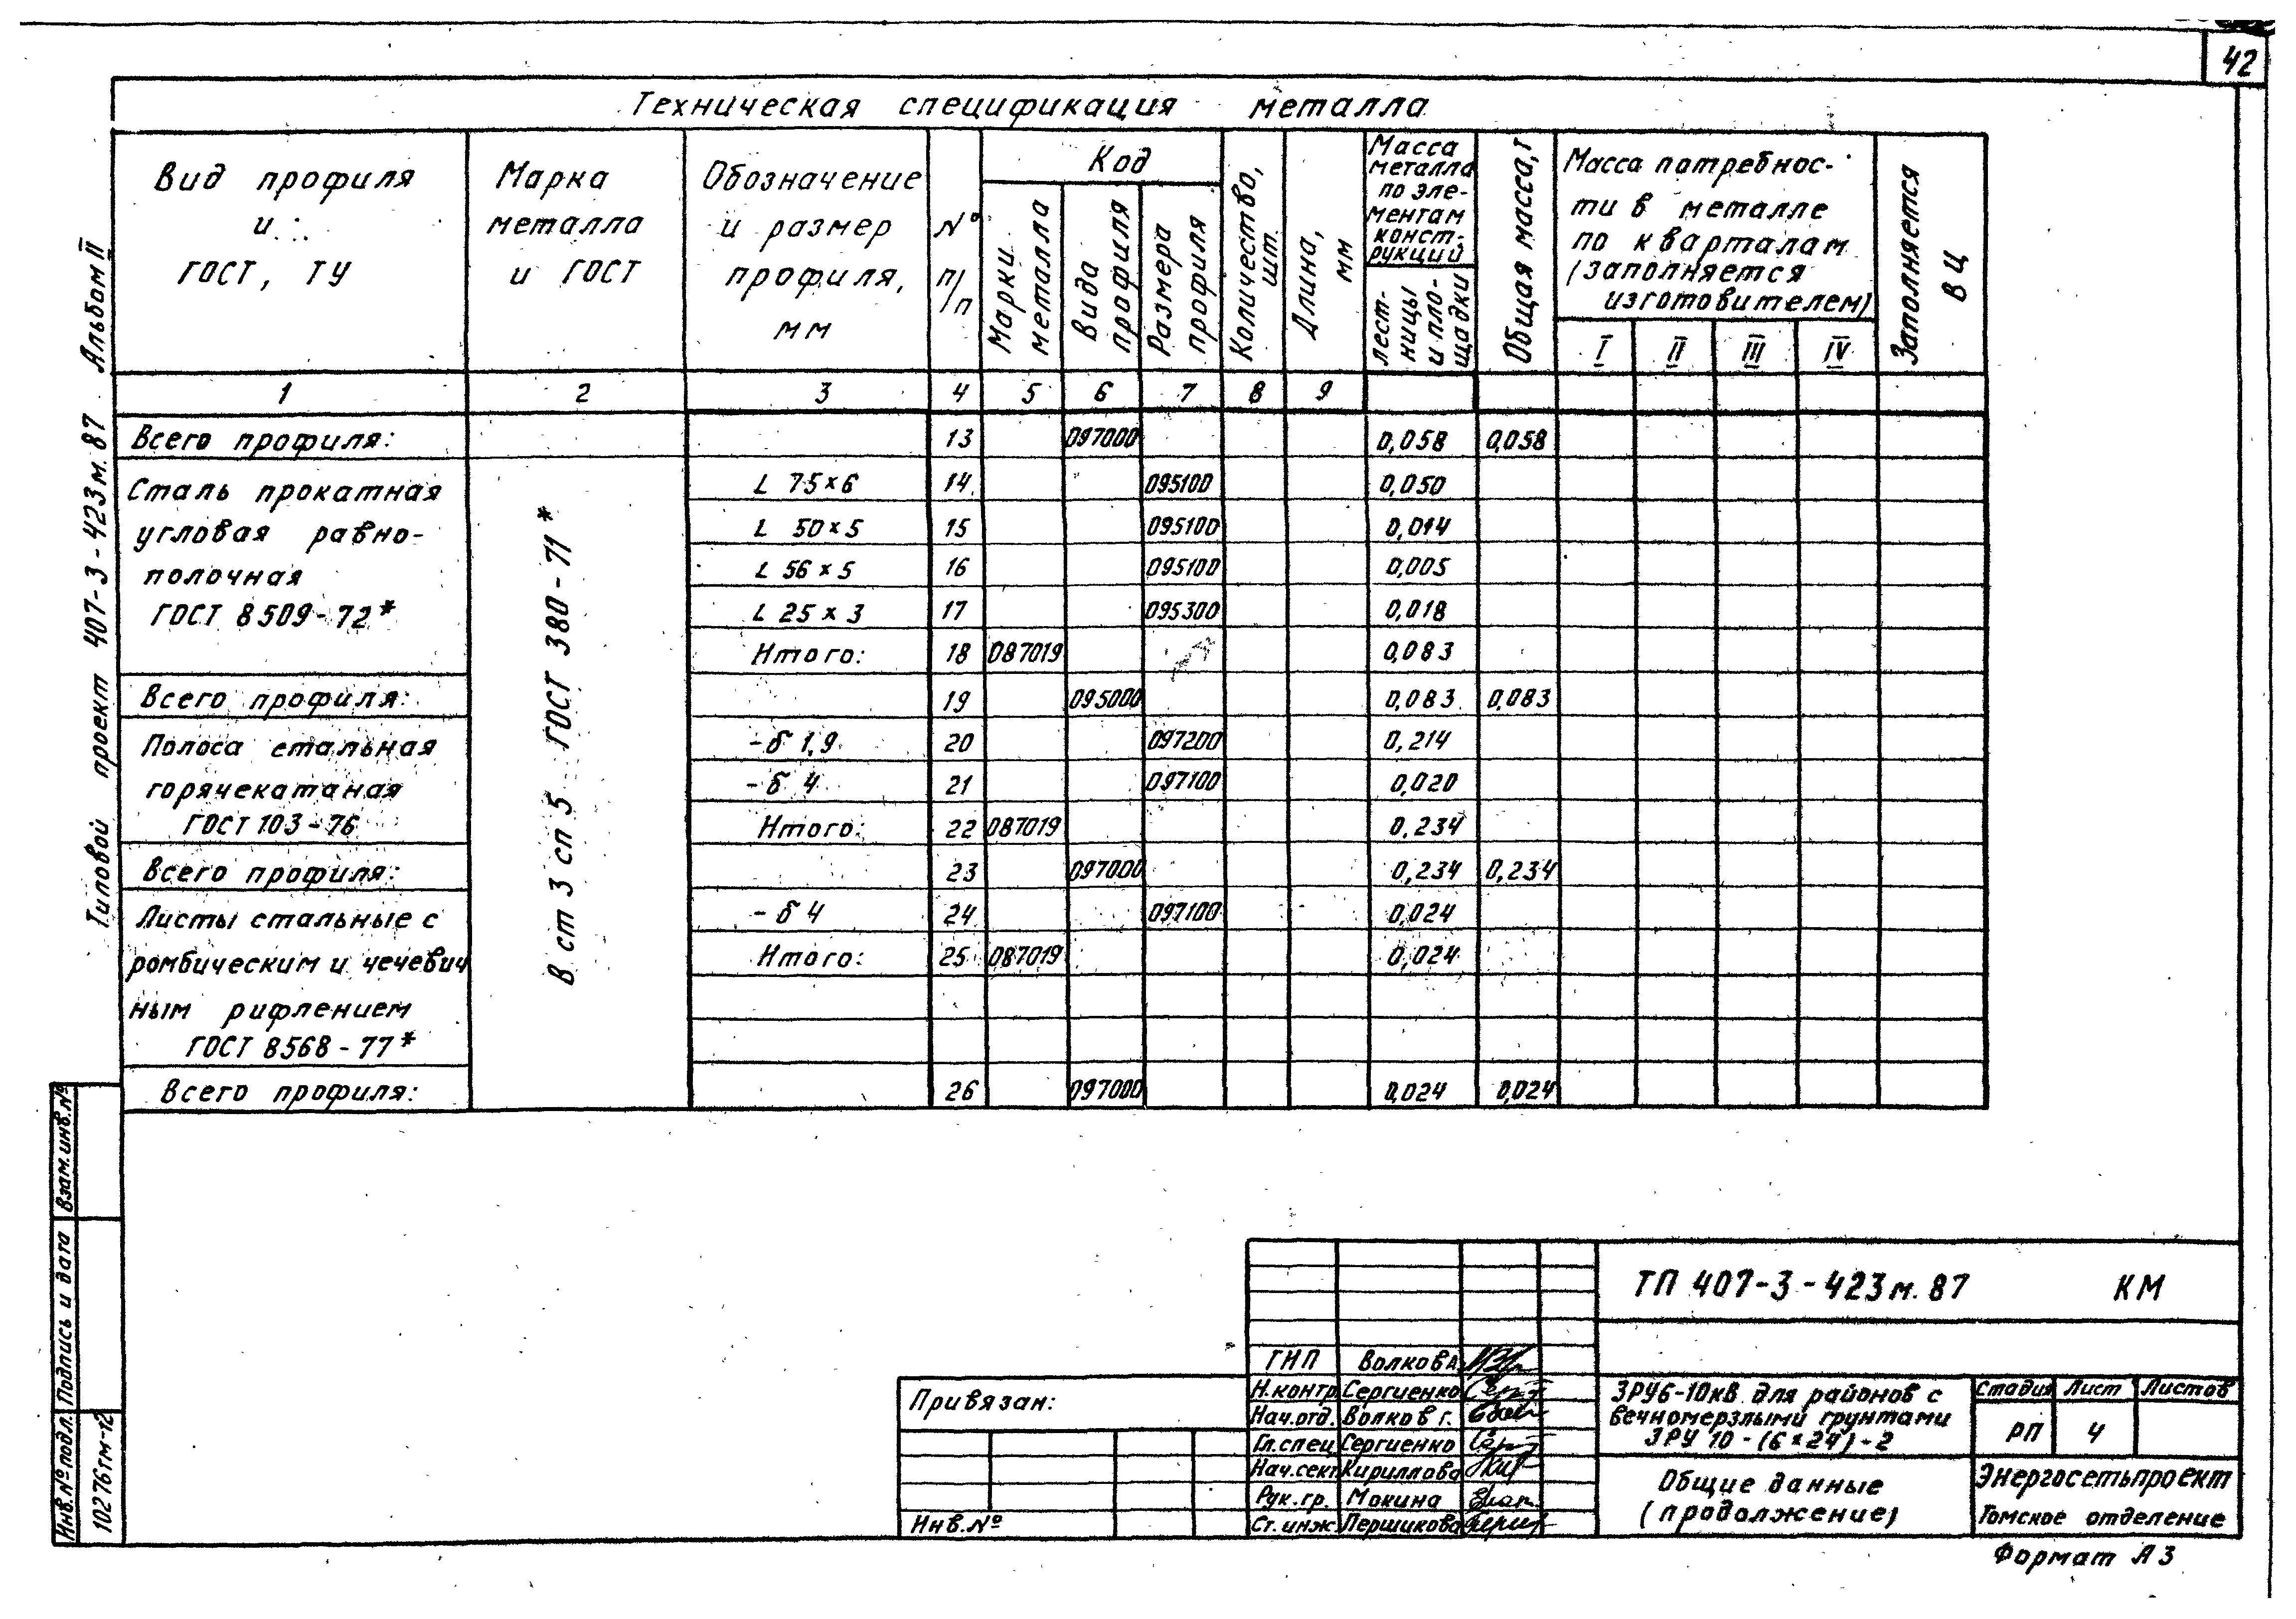 42
Техническая спецификация металла
Вид профиля
и
ГОСТ, ТУ
Марка
металла
и ГОСТ
Обозначение
и размер
профиля,
мм
№
п/п
Код
Марки
металла
Вида
профиля
Размера
профиля
Количество,
шт.
Длина,
мм
Масса
металла
по эле-
ментам
конст-
рукций
лест-
ницы
и пло-
щадки
Общая масса, т
Масса потребнос-
ти в металле
по кварталам
(заполняется
изготовителем)
I II III IV
Заполняется
ВЦ
1 2 3 4 5 6 7 8 9
Всего профиля: 13 097000 0,058 0,058
Сталь прокатная
угловая равно-
полочная
ГОСТ 8509-72*
В ст 3 сп 5 ГОСТ 380-71*
L 75×6 14 095100 0,050
L 50×5 15 095100 0,014
L 56×5 16 095100 0,005
L 25×3 17 095300 0,018
Итого: 18 087019 0,083
Всего профиля: 19 095000 0,083 0,083
Полоса стальная
горячекатаная
ГОСТ 103-76
-δ 1,9 20 097200 0,214
-δ 4 21 097100 0,020
Итого: 22 087019 0,234
Всего профиля: 23 097000 0,234 0,234
Листы стальные с
ромбическим и чечевич
ным рифлением
ГОСТ 8568-77*
-δ 4 24 097100 0,024
Итого: 25 087019 0,024
Всего профиля: 26 097000 0,024 0,024
Типовой проект 407-3-423м.87 Альбом II
Взам.инв.№
Подпись и дата
Инв.№подл.
10276тм-т2
Привязан:
Инв.№
ГИП Волкова
Н.контр. Сергиенко
Нач.отд. Волков г.
Гл.спец Сергиенко
Нач.сект Кириллова
Рук.гр. Мокина
Ст.инж. Першикова
ТП 407-3-423м.87 КМ
ЗРУ6-10кв для районов с
вечномерзлыми грунтами
ЗРУ 10-(6×24)-2
Стадия Лист Листов
РП 4
Общие данные
(продолжение)
Энергосетьпроект
Томское отделение
Формат А3